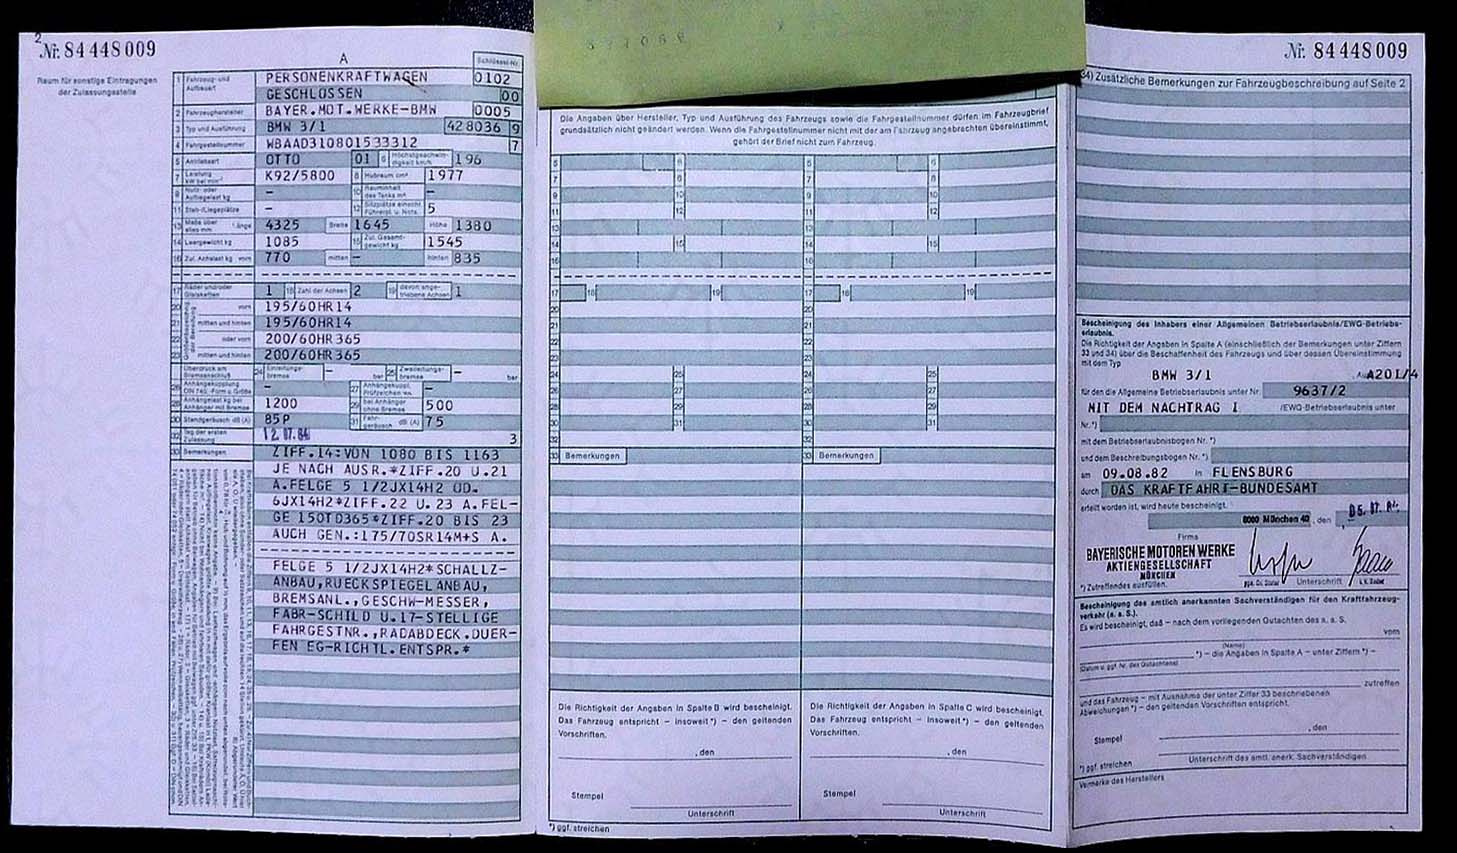 2
Nr. 84 448 009
Raum für sonstige Eintragungen
der Zulassungsstelle
A
Schlüssel-Nr.
1 Fahrzeug- und Aufbauart PERSONENKRAFTWAGEN 0102
GESCHLOSSEN 00
2 Fahrzeughersteller BAYER.MOT.WERKE-BMW 0005
3 Typ und Ausführung BMW 3/1 428036 9
4 Fahrgestellnummer WBAAD310801533312 7
5 Antriebsart OTTO 01 6 Höchstgeschwindigkeit km/h 196
7 Leistung kW bei min K92/5800 8 Hubraum cm³ 1977
9 Nutz- oder Aufliegelast kg – 10 Rauminhalt des Tanks m³ –
11 Steh-/Liegeplätze – 12 Sitzplätze einschl. Führerpl. u. Nots. 5
13 Maße über alles mm Länge 4325 Breite 1645 Höhe 1380
14 Leergewicht kg 1085 15 Zul. Gesamtgewicht kg 1545
16 Zul. Achslast kg vorn 770 mitten – hinten 835
17 Räder und/oder Gleisketten 1 18 Zahl der Achsen 2 19 davon angetriebene Achsen 1
20 vorn 195/60HR14
21 mitten und hinten 195/60HR14
22 oder vorn 200/60HR365
23 mitten und hinten 200/60HR365
Überdruck am Bremsanschluß 24 Einleitungsbremse – bar 25 Zweileitungsbremse – bar
26 Anhängekupplung DIN 740, Form u. Größe – 27 Anhängekuppl. Prüfzeichen –
28 Anhängelast kg bei Anhänger mit Bremse 1200 29 bei Anhänger ohne Bremse 500
30 Standgeräusch dB (A) 85P 31 Fahrgeräusch dB (A) 75
32 Tag der ersten Zulassung 12. 07. 84 3
33 Bemerkungen ZIFF.14:VON 1080 BIS 1163
JE NACH AUSR.*ZIFF.20 U.21
A.FELGE 5 1/2JX14H2 OD.
6JX14H2*ZIFF.22 U.23 A.FEL-
GE 150TD365*ZIFF.20 BIS 23
AUCH GEN.:175/70SR14M+S A.
FELGE 5 1/2JX14H2*SCHALLZ-
ANBAU,RUECKSPIEGELANBAU,
BREMSANL.,GESCHW-MESSER,
FABR-SCHILD U.17-STELLIGE
FAHRGESTNR.,RADABDECK.DUER-
FEN EG-RICHTL.ENTSPR.*
Die Angaben über Hersteller, Typ und Ausführung des Fahrzeugs sowie die Fahrgestellnummer dürfen im Fahrzeugbrief
grundsätzlich nicht geändert werden. Wenn die Fahrgestellnummer nicht mit der am Fahrzeug angebrachten übereinstimmt,
gehört der Brief nicht zum Fahrzeug.
5 6 5 6
7 8 7 8
9 10 9 10
11 12 11 12
13 13
14 15 14 15
16 16
17 18 19 17 18 19
20 20
21 21
22 22
23 23
24 25 24 25
26 27 26 27
28 29 28 29
30 31 30 31
32 32
33 Bemerkungen 33 Bemerkungen
Die Richtigkeit der Angaben in Spalte B wird bescheinigt.
Das Fahrzeug entspricht – insoweit*) – den geltenden
Vorschriften.
, den
Stempel
Unterschrift
*) ggf. streichen
Die Richtigkeit der Angaben in Spalte C wird bescheinigt.
Das Fahrzeug entspricht – insoweit*) – den geltenden
Vorschriften.
, den
Stempel
Unterschrift
Nr. 84 448 009
34) Zusätzliche Bemerkungen zur Fahrzeugbeschreibung auf Seite 2
Bescheinigung des Inhabers einer Allgemeinen Betriebserlaubnis/EWG-Betriebs-
erlaubnis.
Die Richtigkeit der Angaben in Spalte A (einschließlich der Bemerkungen unter Ziffern
33 und 34) über die Beschaffenheit des Fahrzeugs und über dessen Übereinstimmung
mit dem Typ
BMW 3/1 A201/4
für den die Allgemeine Betriebserlaubnis unter Nr. 9637/2
MIT DEM NACHTRAG 1 /EWG-Betriebserlaubnis unter
Nr.*)
mit dem Betriebserlaubnisbogen Nr. *)
und dem Beschreibungsbogen Nr. *)
am 09.08.82 in FLENSBURG
durch DAS KRAFTFAHRT-BUNDESAMT
erteilt worden ist, wird heute bescheinigt.
8000 München 40, den 05. 07. 84
Firma
BAYERISCHE MOTOREN WERKE
AKTIENGESELLSCHAFT
MÜNCHEN
Unterschrift
*) Zutreffendes ausfüllen.
Bescheinigung des amtlich anerkannten Sachverständigen für den Kraftfahrzeug-
verkehr (a. a. S.).
Es wird bescheinigt, daß – nach dem vorliegenden Gutachten des a. a. S.
vom
(Name)
*) – die Angaben in Spalte A – unter Ziffern *) –
(Datum u. ggf. Nr. des Gutachtens)
zutreffen
und das Fahrzeug – mit Ausnahme der unter Ziffer 33 beschriebenen
Abweichungen *) – den geltenden Vorschriften entspricht.
, den
Stempel
*) ggf. streichen
Unterschrift des amtl. anerk. Sachverständigen
Vermerke des Herstellers